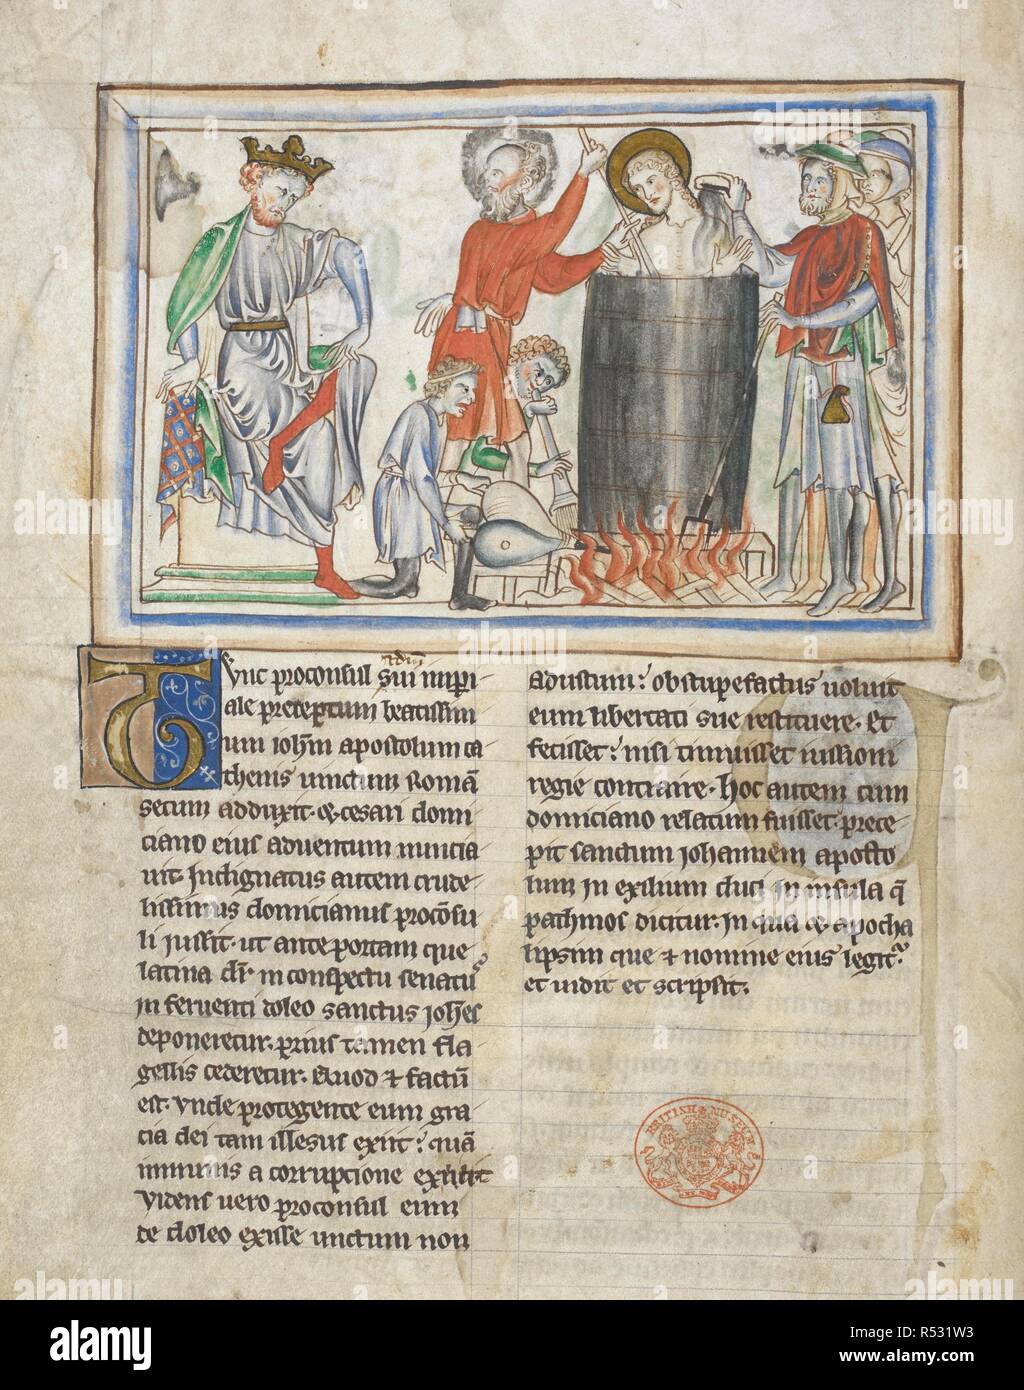 Tunc proconsul sui imperi
ale preceptum beatissim
um ioh̅m apostolum ca
thenis vinctum Roma̅
secum adduxit. et cesari domi
ciano eius adventum nuncia
vit. Indignatus autem crude
lissimus domicianus proco̅su
li iussit. ut ante portam que
latina dr̅ in conspectu senatus
in ferventi doleo sanctus ioh̅es
deponeretur. prius tamen fla
gellis cederetur. Quod et factu̅
est. Unde protegente eum gra
cia dei tam illesus exiit: qua̅
immunis a corrupcione extitit
Videns vero proconsul eum
de doleo exisse unctum non
Adustum: obstupefactus voluit
eum libertati sue restituere. Et
fecisset: nisi timuisset iussioni
regie contraire. Hoc autem cum
domiciano relatum fuisset. prece
pit sanctum iohannem aposto
lum in exilium duci in insula q̅
pathmos dicitur. In qua et apocha
lipsim que et nomine eius legitur
et vidit et scripsit.
BRITISH MUSEUM
alamy
Image ID: R531W3
www.alamy.com